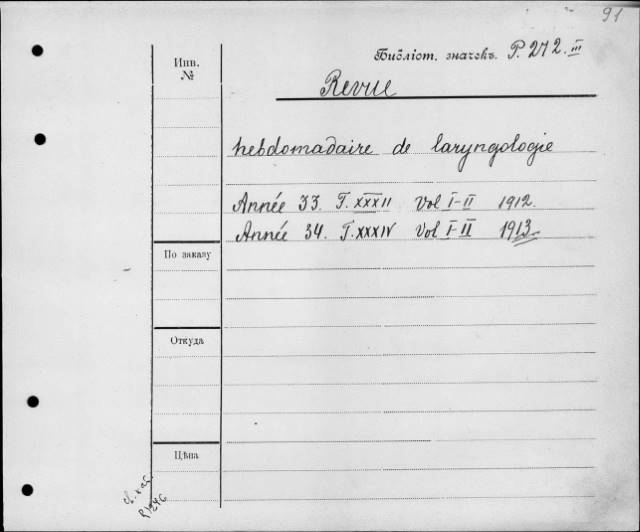 91
Инв.
№
Библіот. значекъ. P. 272. III
Revue
hebdomadaire de laryngologie
Année 33. T. XXXII Vol I-II 1912.
Année 34. T. XXXIV Vol I-II 1913.
По заказу
Откуда
Цѣна